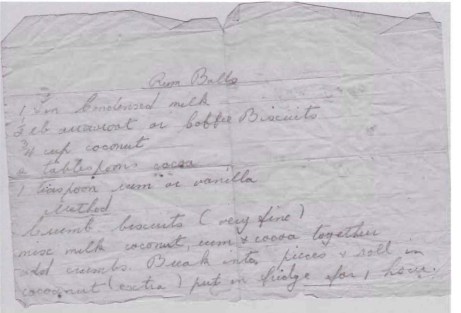 Rum Balls
1 Tin Condensed milk
½ lb arrowroot or Coffee Biscuits
¾ cup coconut
2 tablespoons cocoa
1 teaspoon rum or vanilla
Method
Crumb biscuits (very fine)
mix milk coconut, rum & cocoa together
add crumbs. Break into pieces & roll in
coconut (extra) put in fridge for 1 hour.